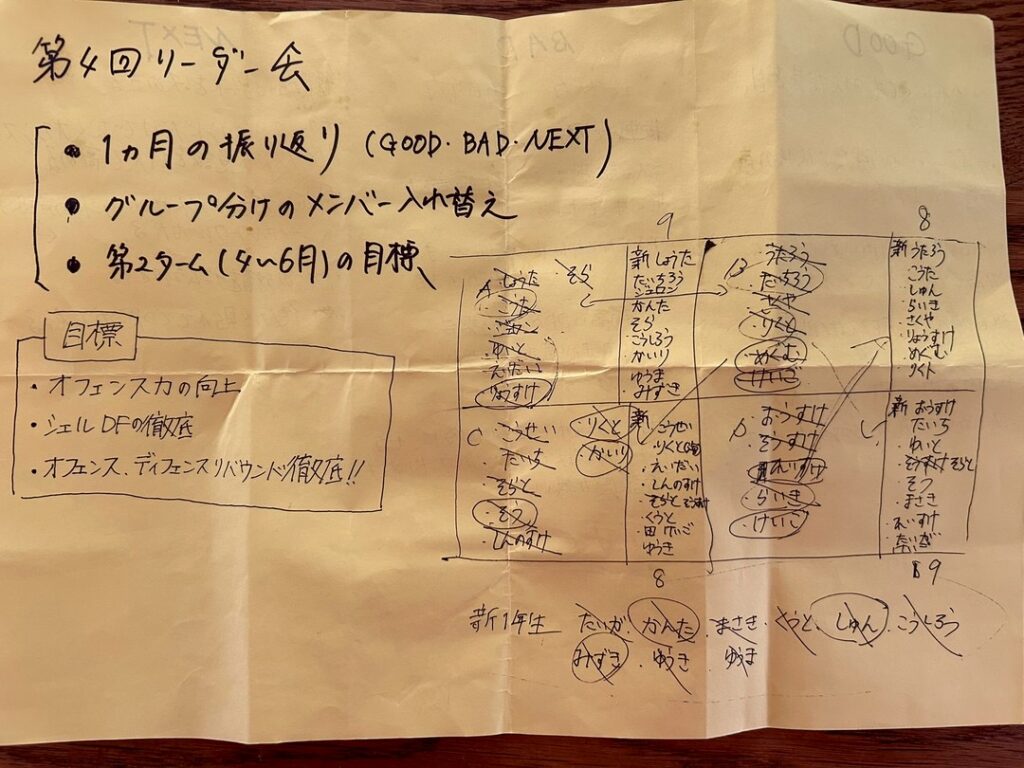 第4回リーダー会
・1ヵ月の振り返り (GOOD・BAD・NEXT)
・グループ分けのメンバー入れ替え
・第2ターム(4〜6月)の目標
目標
・オフェンス力の向上
・シェルDFの徹底
・オフェンス、ディフェンスリバウンド徹底!!
9
A
・しょうた
・こうた
・ジェロン
・れいと
・えいたい
・りょうすけ
・そら
新 しょうた
たいちろう
ジェロン
かんた
そら
こうしろう
かいり
ゆうま
・みずき
8
B
うたろう
・たいちろう
・さくや
・りくと
・めぐむ
・けいご
新 うたろう
こうた
しゅん
らいき
さくや
りょうすけ
めぐむ
りくト
C
・こうせい
・たいち
・そらと
・そう
・しんのすけ
・りくと
・かいり
新
・こうせい
・りくと
・えいたい
・しんのすけ
・そらと そうすけ
・くうと
・田 けいご
ゆうき
8
D
・おうすけ
・そうすけ
・れいすけ
・らいき
・けいご
新 おうすけ
たいち
・れいと
・そうすけ そらと
・そう
・まさき
れいすけ
・たいが
9
新1年生
たいが・かんた・まさき・くうと・しゅん・こうしろう
みずき・ゆうき・ゆうま
GOOD
BAD
NEXT